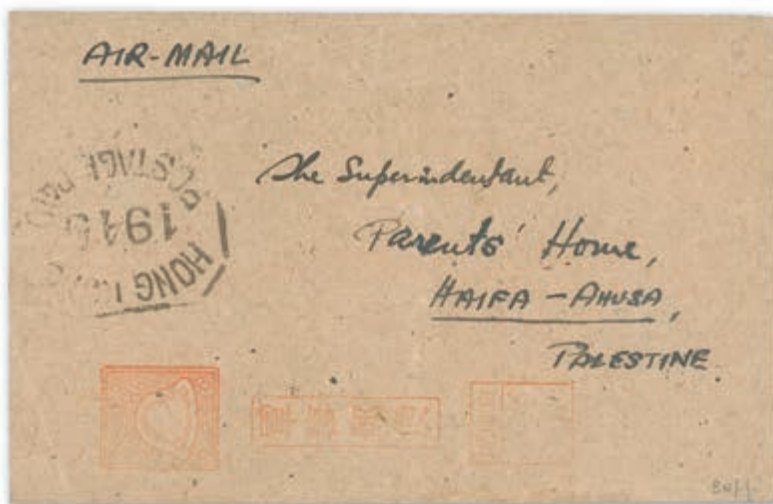 AIR-MAIL
POSTAGE PAID
1945
HONG
The Superindentant,
Parents' Home,
HAIFA - AHUSA,
PALESTINE